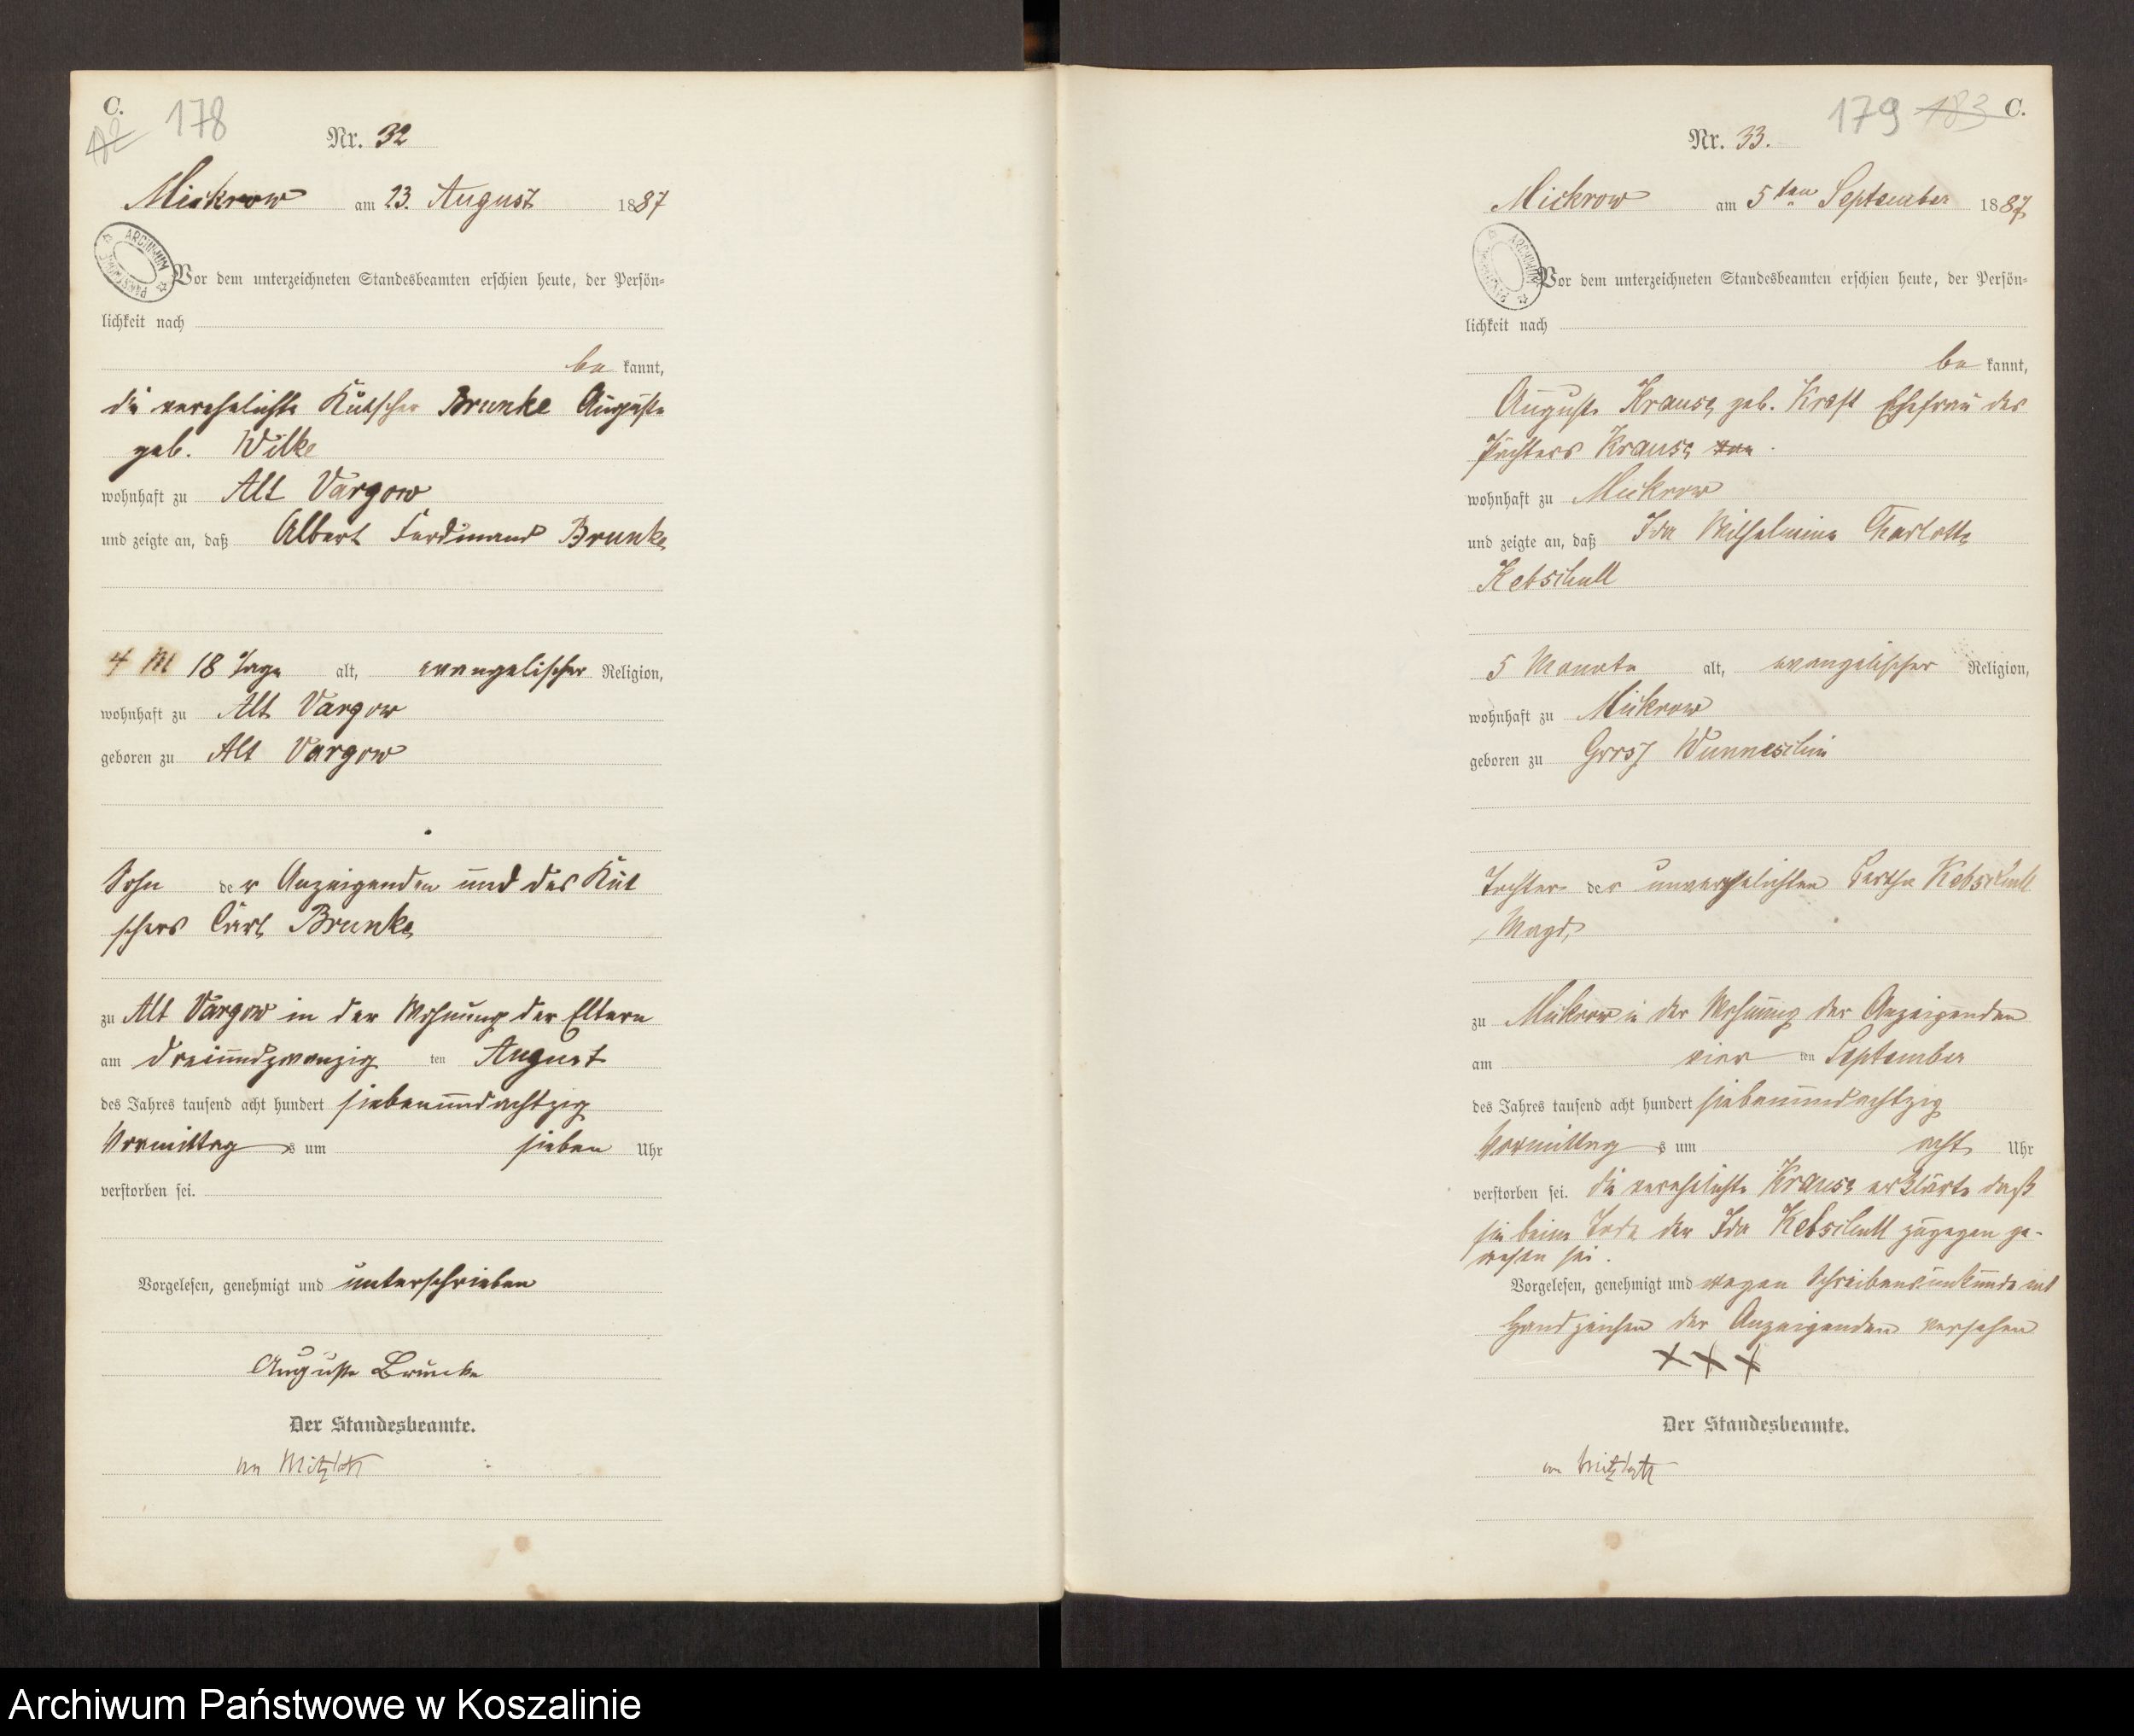 C. 178
Nr. 32
Mickrow am 23. August 1887
ARCHIWUM PAŃSTWOWE
Vor dem unterzeichneten Standesbeamten erschien heute, der Persön-
lichkeit nach
be kannt,
die verehelichte Kutscher Brunke Auguste
geb. Wilke
wohnhaft zu Alt Vargow
und zeigte an, daß Albert Ferdinand Brunke
4 M 18 Tage alt, evangelischer Religion,
wohnhaft zu Alt Vargow
geboren zu Alt Vargow
Sohn der Anzeigenden und des Kut
schers Carl Brunke
zu Alt Vargow in der Wohnung der Eltern
am dreiundzwanzig ten August
des Jahres tausend acht hundert siebenundachtzig
Vormittag s um sieben Uhr
verstorben sei.
Vorgelesen, genehmigt und unterschrieben
Auguste Brunke
Der Standesbeamte.
179 183 C.
Nr. 33.
Mickrow am 5ten September 1887
ARCHIWUM PAŃSTWOWE
Vor dem unterzeichneten Standesbeamten erschien heute, der Persön-
lichkeit nach
be kannt,
Auguste Krause geb. Kraft Ehefrau des
Pächters Krause von
wohnhaft zu Mickrow
und zeigte an, daß Ida Wilhelmine Charlotte
Kebschull
5 Monate alt, evangelischer Religion,
wohnhaft zu Mickrow
geboren zu Gross Wunneschin
Tochter der unverehelichten Bertha Kebschull
Magd,
zu Mickrow in der Wohnung der Anzeigenden
am vier ten September
des Jahres tausend acht hundert siebenundachtzig
Vormittag s um acht Uhr
verstorben sei. die verehelichte Krause erklärte daß
sie beim Tode der Ida Kebschull zugegen ge-
wesen sei.
Vorgelesen, genehmigt und wegen Schreibensunkunde mit
Handzeichen der Anzeigenden versehen
XXX
Der Standesbeamte.
Archiwum Państwowe w Koszalinie